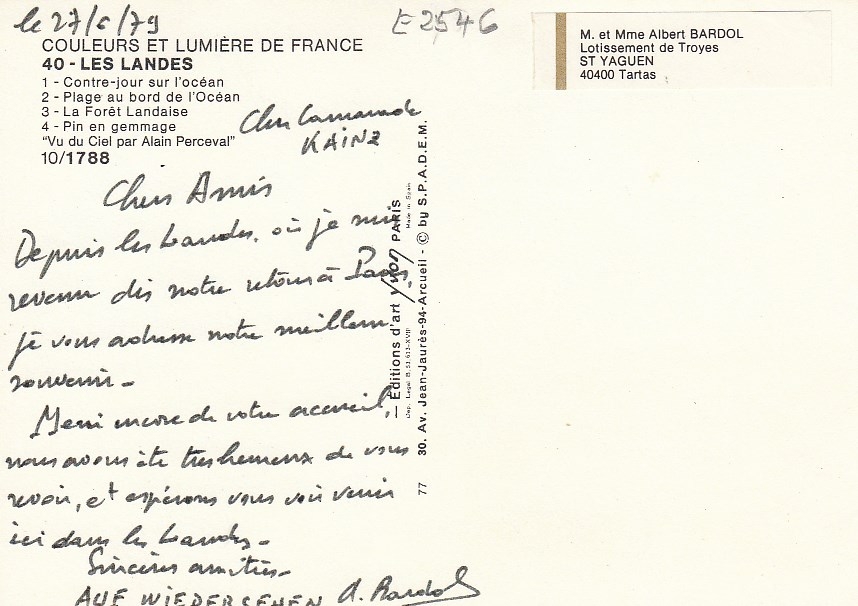 le 27/6/79
E2546
COULEURS ET LUMIÈRE DE FRANCE
40 - LES LANDES
1 - Contre-jour sur l'océan
2 - Plage au bord de l'Océan
3 - La Forêt Landaise
4 - Pin en gemmage
"Vu du Ciel par Alain Perceval"
10/1788
M. et Mme Albert BARDOL
Lotissement de Troyes
ST YAGUEN
40400 Tartas
Cher Camarade
KAINZ
Chers Amis
Depuis les Landes, où je suis
revenu dès notre retour à Paris,
je vous adresse notre meilleur
souvenir -
Merci encore de votre accueil,
nous avons été très heureux de vous
revoir, et espérons vous voir venir
ici dans les Landes -
Sincères amitiés -
AUF WIEDERSEHEN A. Bardol
— Editions d'art yvon PARIS
Made in Spain
Dep. Legal B. 51.613-XVII
77 30. Av. Jean-Jaurès-94-Arcueil - © by S.P.A.D.E.M.